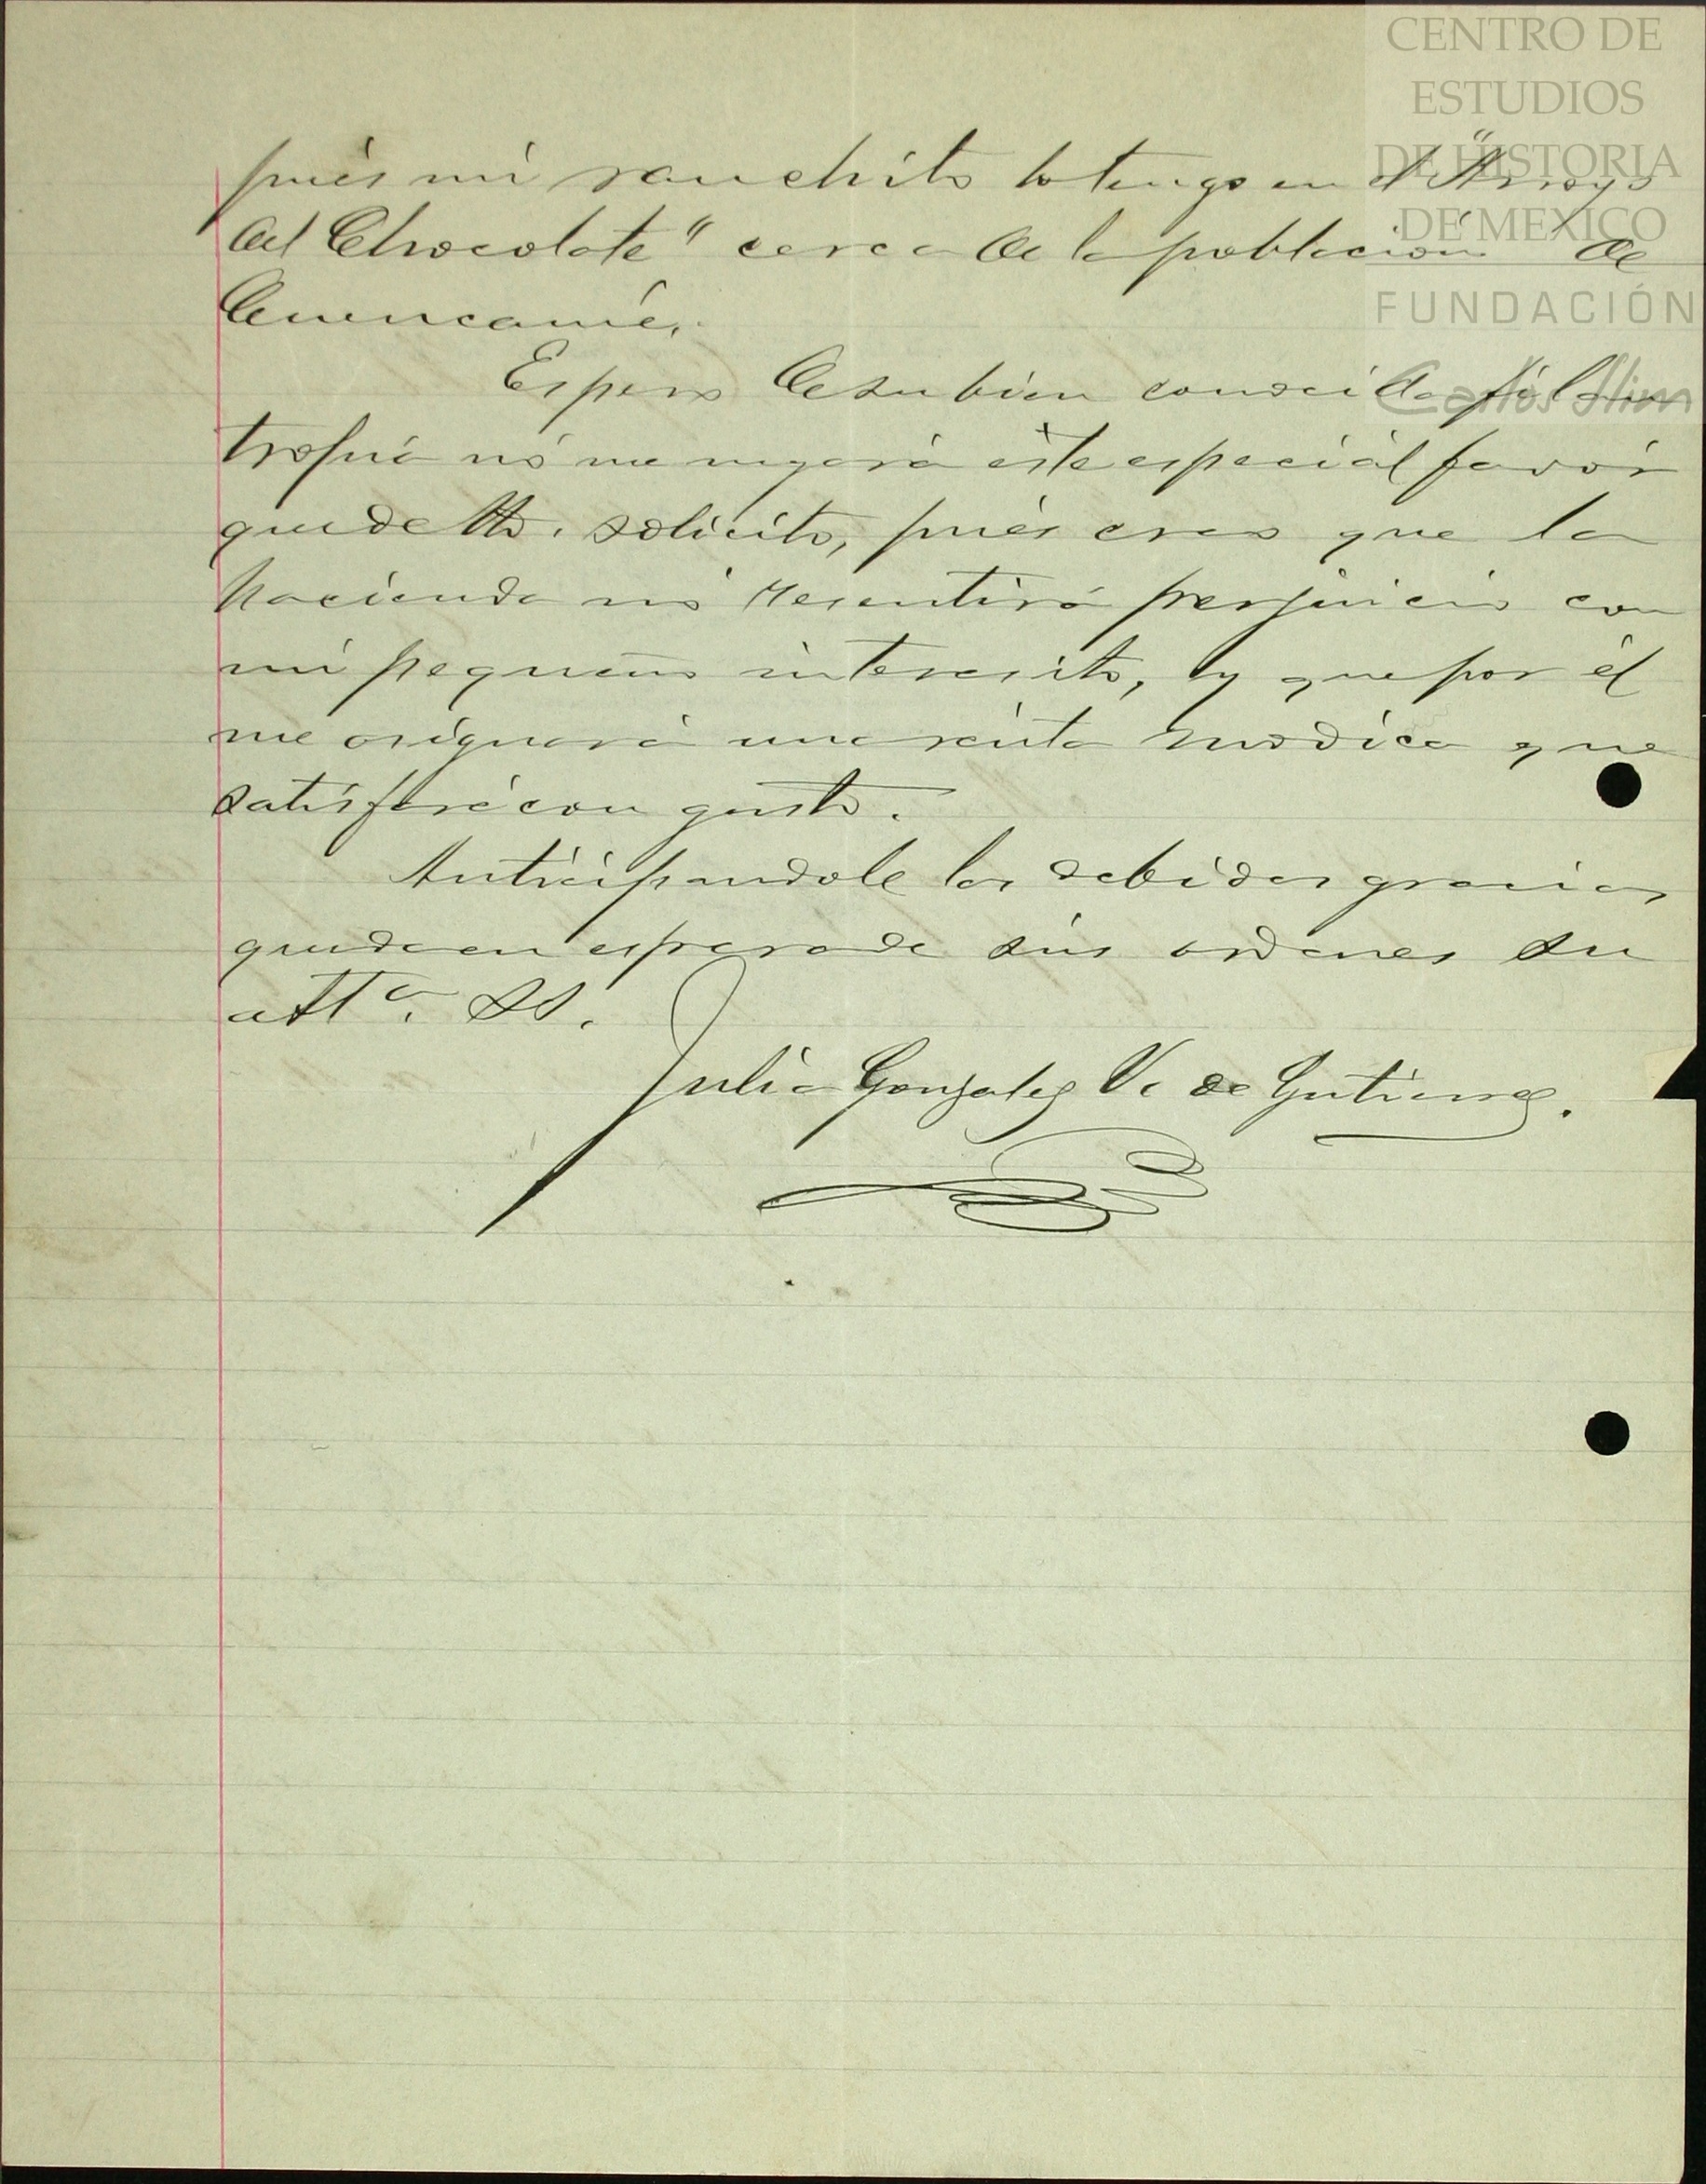 CENTRO DE
ESTUDIOS
DE HISTORIA
DE MEXICO
FUNDACIÓN
Carlos Slim
pués mi ranchito lo tengo en el "Arroyo
del Chocolate" cerca de la población de
Cuencamé.
Espero de su bien conocida filan
tropía nó me negará éste especiál favór
que de Ud. solicito, pués creo que la
Hacienda nó resentirá perjuicio con
mi pequeño interesito, y que por él
me asignará una renta modica que
satisfaré con gusto.
Anticipandole las debidas gracias
queda en espera de sus ordenes su
atta. SS.
Julia Gonzalez V. de Gutierrez.